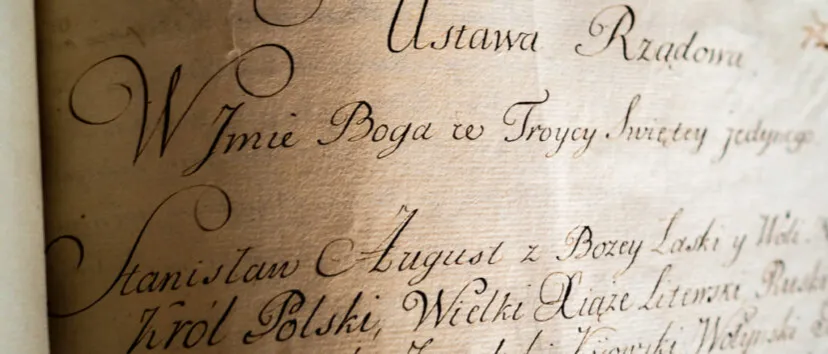 Ustawa Rządowa
W Jmie Boga w Troycy Swiętey jedynego
Stanisław August z Bozey Łaski y Woli
Król Polski, Wielki Xiąże Litewski, Ruski
Kijowski, Wołyński